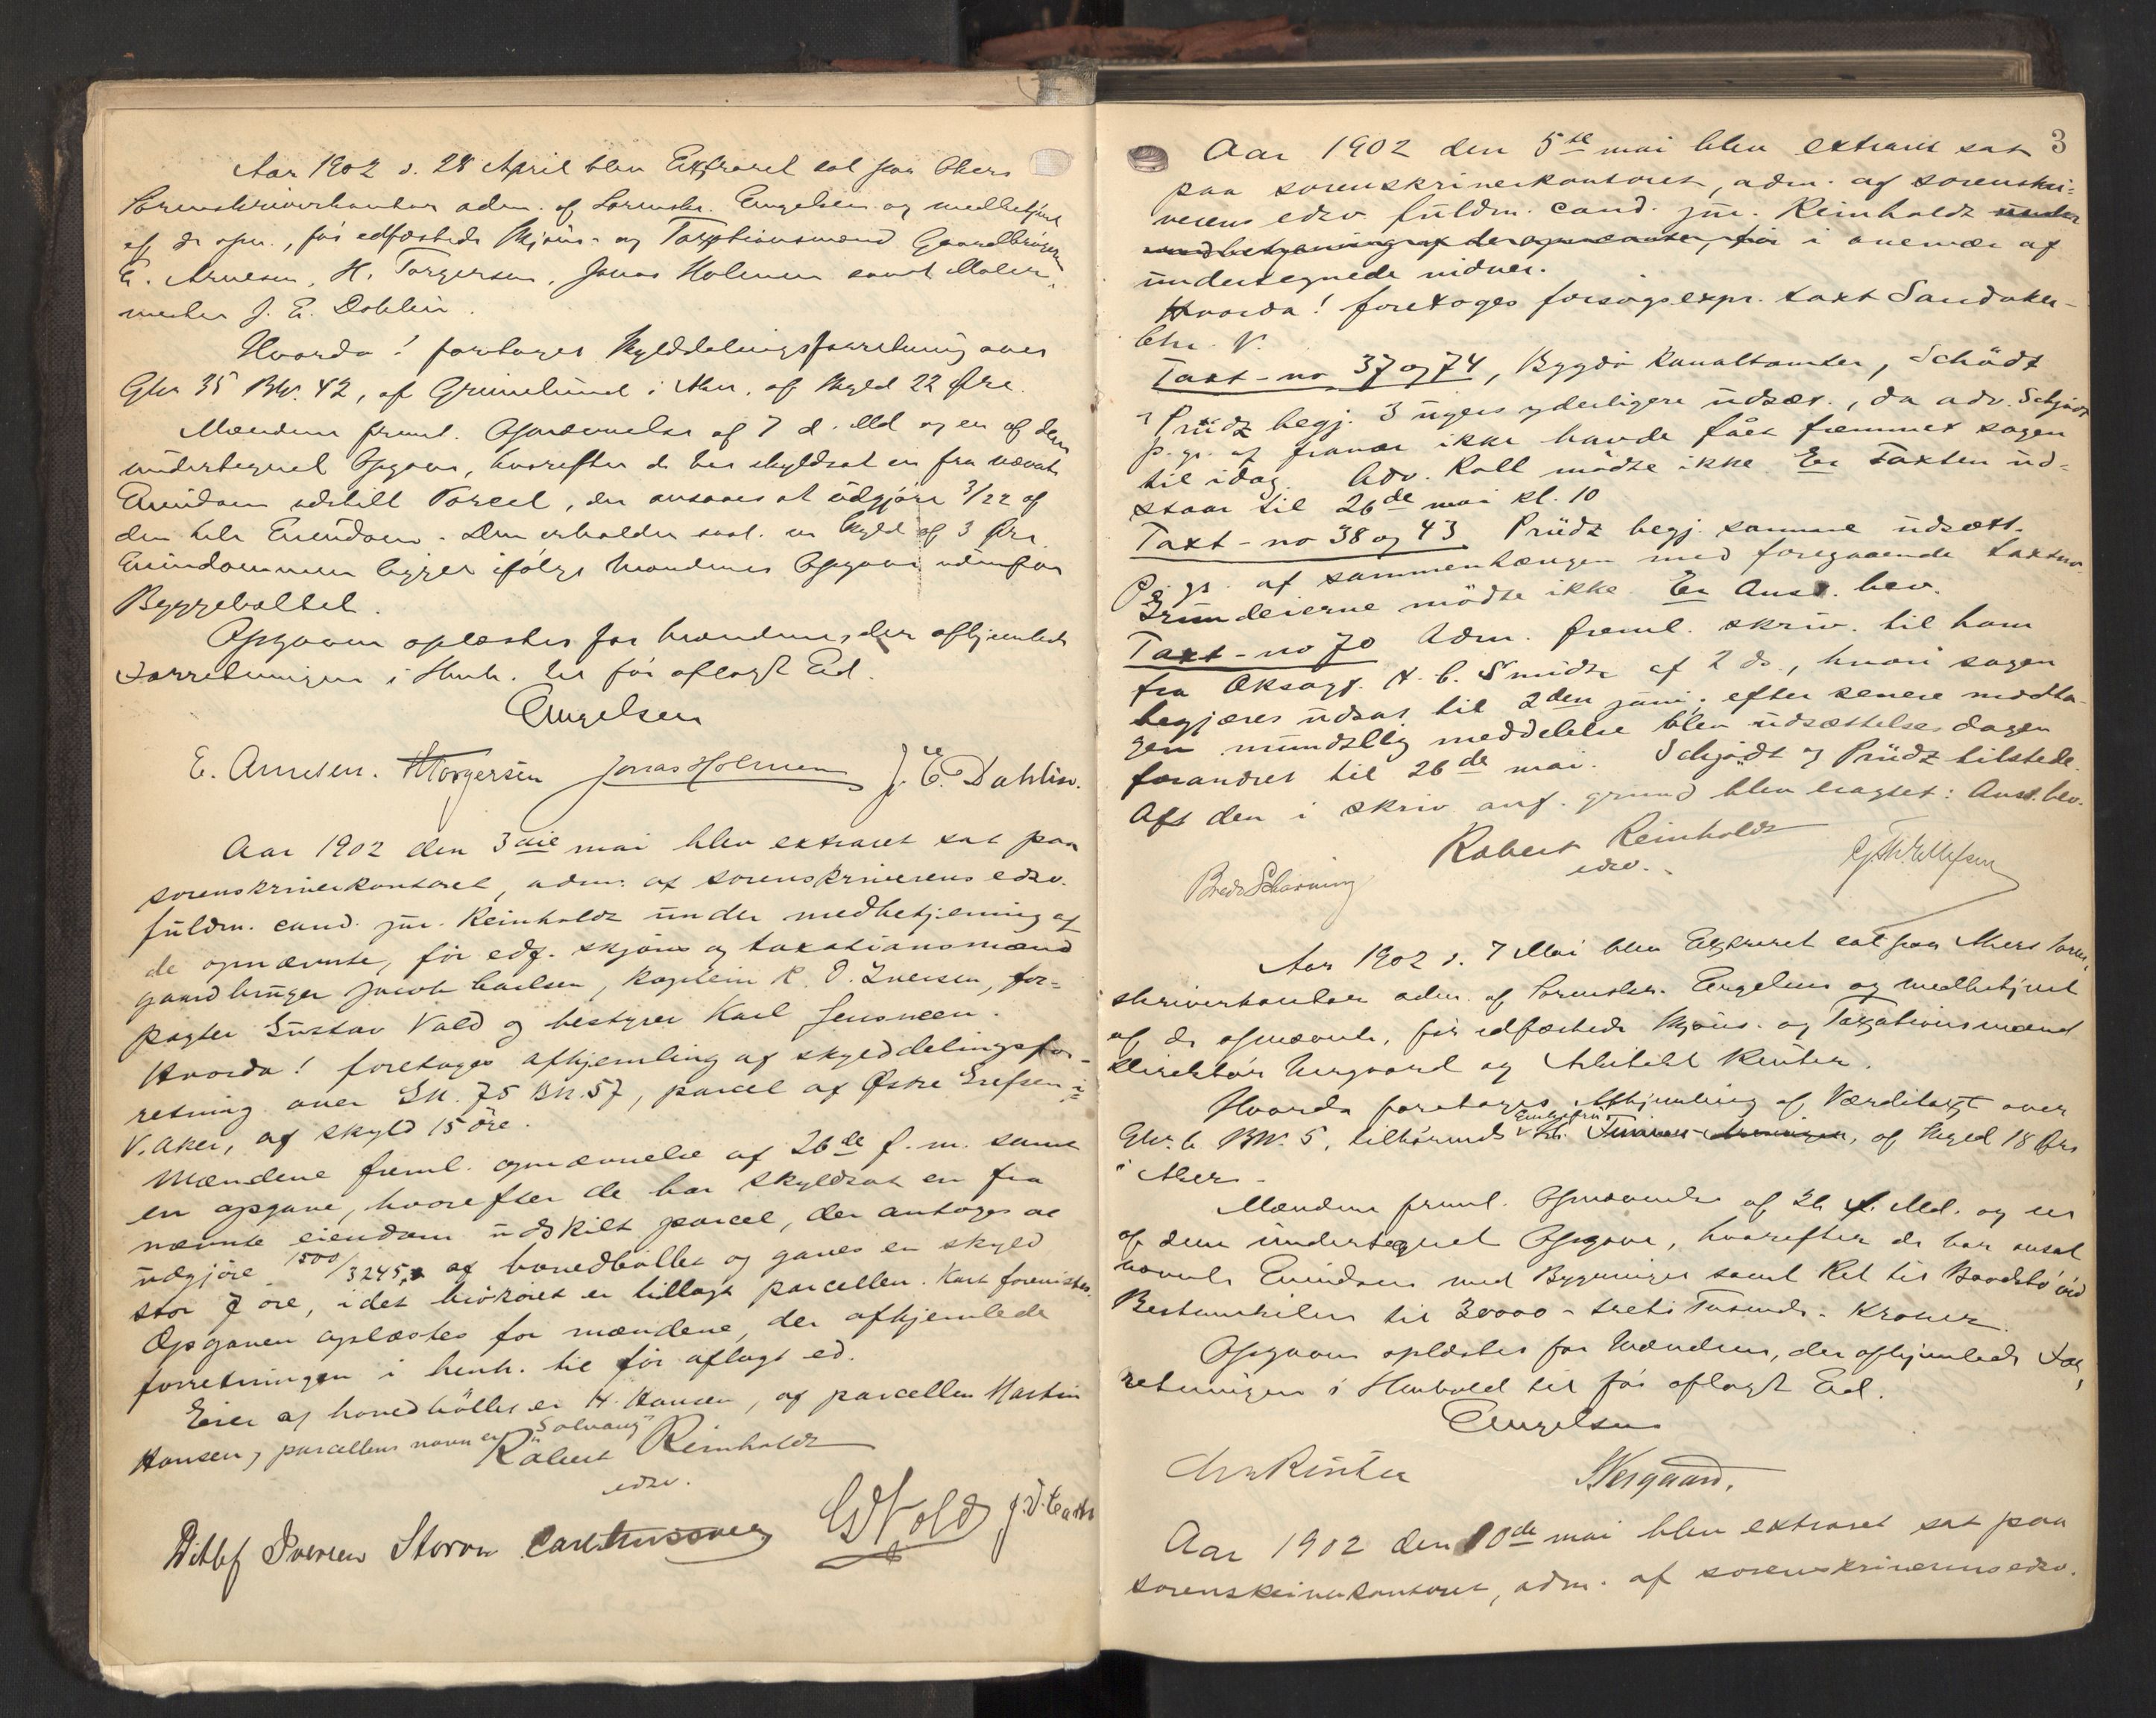 Aar 1902 d. 28 April blev Extraret sat paa Akers
Sorenskriverkontor adm. af Sorenskr. Engelsen og medbetjent
af de opn., før edfæstede Skjøns- og Taxationsmænd Gaardbruger
E. Arnesen, H. Torgersen, Jonas Holmen samt Maler-
mester J. E. Dahlin.
Hvorda! foretoges Skylddelingsforretning over
Gbr 35 Bn. 42, af Grimelund i Aker, af Skyld 22 Øre.
Mændene freml. Opnævnelse af 7 d. Md og en af dem
undertegnet Opgave, hvorefter de har skyldsat en fra nævnte
Eiendom udskilt Parcel, der ansaaes at udgjøre 3/22 af
den hele Eiendom. Den erholder saal. en Skyld af 3 Øre.
Eiendommen ligger ifølge Mændenes Opgave udenfor
Byggebeltet.
Opgaven oplæstes for Mændene, der afhjemlede
Forretningen i Henh. til før aflagt Ed.
Engelsen
E. Arnesen. HTorgersen Jonas Holmen J. E. Dahlin.
Aar 1902 den 3die mai blev extraret sat paa
sorenskriverkontoret, adm. af sorenskriverens edsv.
fuldm. cand. jur. Reinholdt under medbetjening af
de opnævnte, før edf. skjøns og taxationsmænd
gaardbruger Jacob Carlsen, kaptein R. D. Iversen, for-
pagter Gustav Vold og bestyrer Karl
Hvorda! foretoges afhjemling af skylddelingsfor-
retning over Gn. 75 Bn. 57, parcel af Østre Grefsen i
V. Aker, af skyld 15 øre.
Mændene freml. opnævnelse af 26de f. m. samt
en opgave, hvorefter de har skyldsat en fra
nævnte eiendom udskilt parcel, der antoges at
udgjøre 1500/3245,8 af hovedbøllet og gaves en skyld
stor 7 øre, idet er tillagt parcellen. Kart forevistes.
Opgaven oplæstes for mændene, der afhjemlede
forretningen i henh. til før aflagt ed.
Eier af hovedbøllet er H. Hansen, af parcellen Martin
Hansen, parcellens navn er "Solvang"
Robert Reinholdt
edsv.
Ditlef Iversen Storm Carl GVold J. V. Carls
3
Aar 1902 den 5te mai blev extraret sat
paa sorenskriverkontoret, adm. af sorenskri-
verens edsv. fuldm. cand. jur. Reinholdt under
medbetjening af de opnævnte, før i overvær af
undertegnede vidner.
Hvorda! foretoges forsøgsexpr. taxt Sandaker-
Chr. V.
Taxt-no 37 og 74, Bygdø Kanaltomter, Schødt
& Prüdz begj. 3 ugers yderligere udsæt., da adv. Schjødt
p. gr. af fravær ikke havde fået fremmet sagen
til idag. Adv. Roll mødte ikke. Er Taxten ud-
staar til 26de mai kl. 10
Taxt-no 38 og 43 Prüdz begj. samme udsætt.
p. gr. af sammenhængen med foregaaende taxtno.
Grundeierne mødte ikke. Er Anst. bev.
Taxt-no 70 Adm. freml. skriv. til ham
fra Oksagf. H. C. Smidt af 2 ds., hvori sagen
begjæres udsat til 2den juni; efter senere modta-
gen mundtlig meddelelse blev udsættelsesdagen
forandret til 26de mai. Schjødt & Prüdz tilstede.
Aft den i skriv anf. grund blev eragtet: Anst. bev.
Robert Reinholdt
edsv.
Brede Scharning
Aar 1902 d. 7 Mai blev Extraret sat paa Akers Soren-
skriverkontor adm. af Sorenskr. Engelsen og medbetjent
af de opnævnte, før edfæstede Skjøns- og Taxationsmænd
Direktør Nergaard og Arkitekt Reuter.
Hvorda foretoges Afhjemling af Værditaxt over
Gbr. 6 BN. 5, tilhørende Enkefru af Skyld 18 Øre
i Aker.
Mændene freml. Opnævnelse af 26 f. Md. og en
af dem undertegnet Opgave, hvorefter de har ansat
nævnte Eiendom med Bygninger samt Ret til Baadstø ved
Bestumkilen til 30000 - treti Tusinde - Kroner.
Opgaven oplæstes for Mændene, der afhjemlede For-
retningen i Henhold til før aflagt Ed.
Engelsen
Nergaard.
Aar 1902 den 10de mai blev extraret sat paa
sorenskriverkontoret, adm. af sorenskriverens edsv.